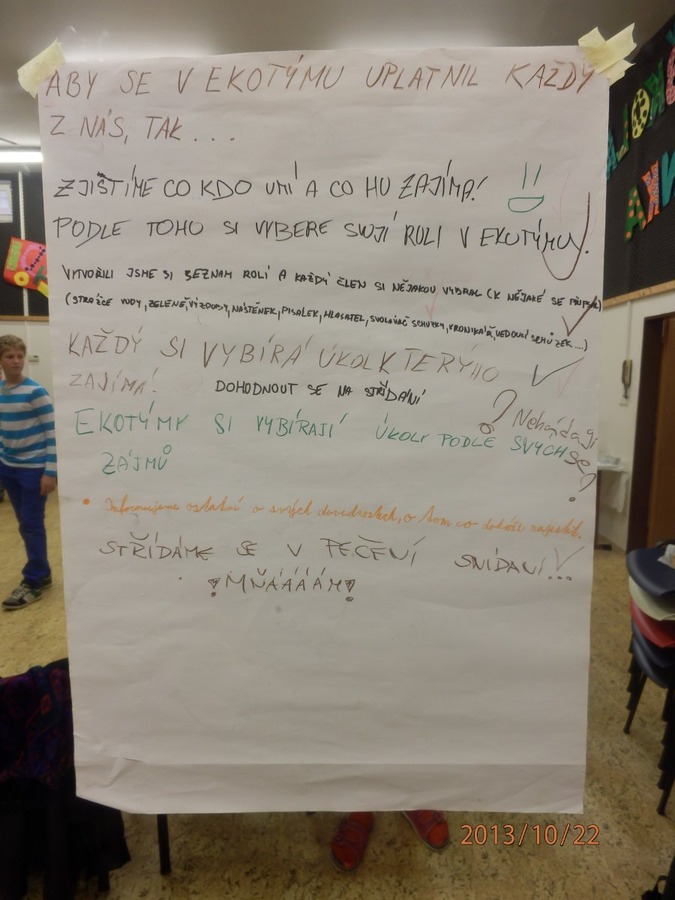 ABY SE V EKOTÝMU UPLATNIL KAŽDÝ
Z NÁS, TAK...
ZJIŠTÍME CO KDO UMÍ A CO HO ZAJÍMÁ!
PODLE TOHO SI VYBERE SVOJÍ ROLI V EKOTÝMU.
VYTVOŘILI JSME SI SEZNAM ROLÍ A KAŽDÝ ČLEN SI NĚJAKOU VYBRAL (K NĚJAKÉ SE PŘIPSAL)
(STRÁŽCE VODY, ZELENĚ, VÝZDOBY, NÁSTĚNEK, PISÁLEK, HLASATEL, SVOLÁVAČ SCHŮZKY, KRONIKÁŘ, VEDOUCÍ SCHŮZEK...)
KAŽDÝ SI VYBÍRÁ ÚKOL KTERÝHO
ZAJÍMÁ!
DOHODNOUT SE NA STŘÍDÁNÍ
? Nehádají
se?
EKOTÝMY SI VYBÍRAJÍ ÚKOLY PODLE SVÝCH
ZÁJMŮ
• Informujeme ostatní o svých dovednostech, o tom co dokáže zajistit.
STŘÍDÁME SE V PEČENÍ SNÍDANÍ...
!MŇÁÁÁÁM!
2013/10/22